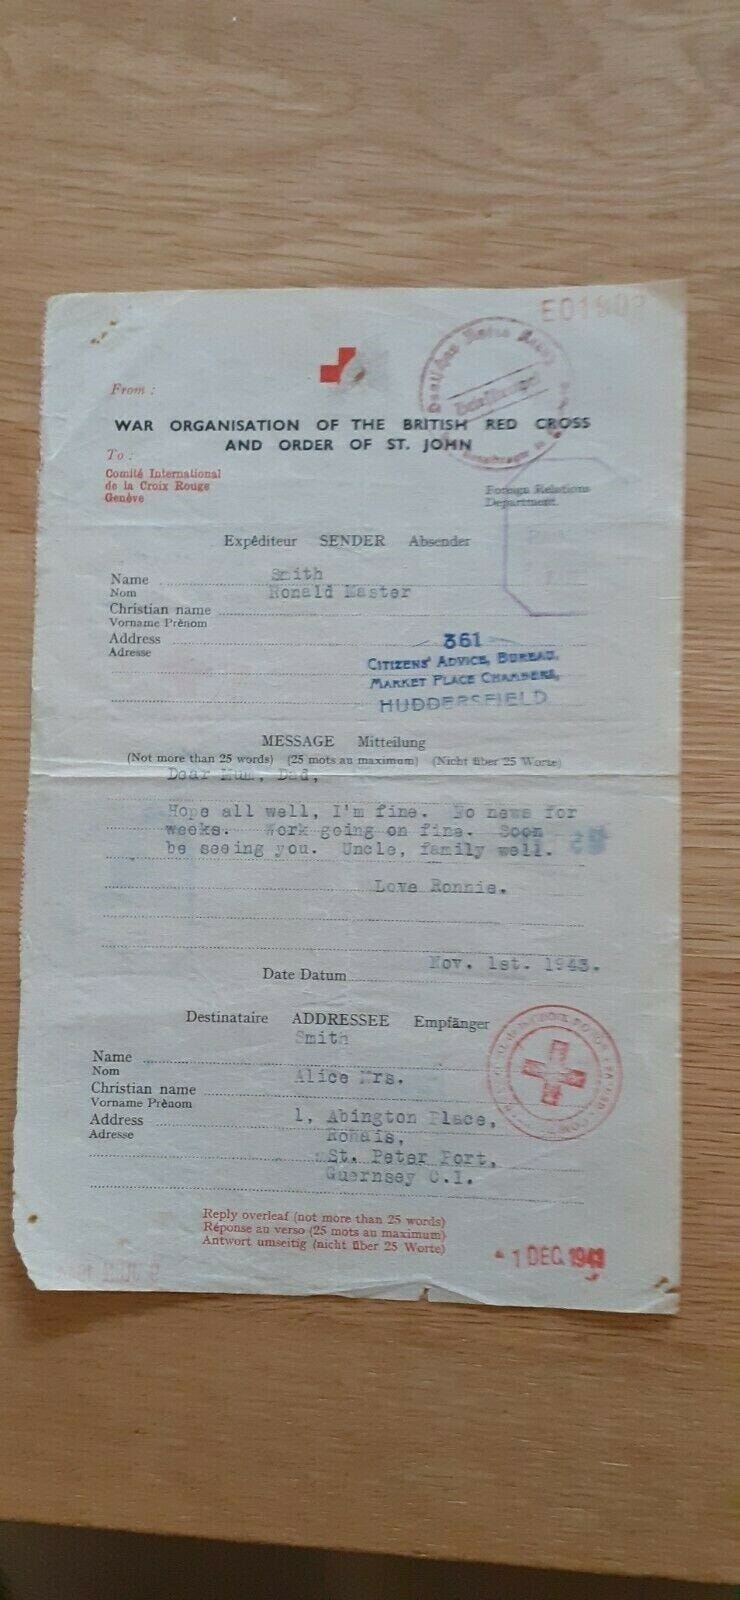 From :
WAR ORGANISATION OF THE BRITISH RED CROSS
AND ORDER OF ST. JOHN
To :
Comité International
de la Croix Rouge
Genève
Foreign Relations
Department.
Expéditeur SENDER Absender
Smith
Name
Nom
Ronald Master
Christian name
Vorname Prénom
Address
Adresse
361
CITIZENS' ADVICE, BUREAU,
MARKET PLACE CHAMBERS,
HUDDERSFIELD
MESSAGE Mitteilung
(Not more than 25 words) (25 mots au maximum) (Nicht über 25 Worte)
Dear Mum, Dad,
Hope all well, I'm fine. No news for
weeks. Work going on fine. Soon
be seeing you. Uncle, family well.
Love Ronnie.
Nov. 1st. 1943.
Date Datum
Destinataire ADDRESSEE Empfänger
Smith
Name
Nom
Alice Mrs.
Christian name
Vorname Prénom
Address
Adresse
1, Abington Place,
Rohais,
St. Peter Port,
Guernsey C.I.
Reply overleaf (not more than 25 words)
Réponse au verso (25 mots au maximum)
Antwort umseitig (nicht über 25 Worte)
1 DEC. 1943